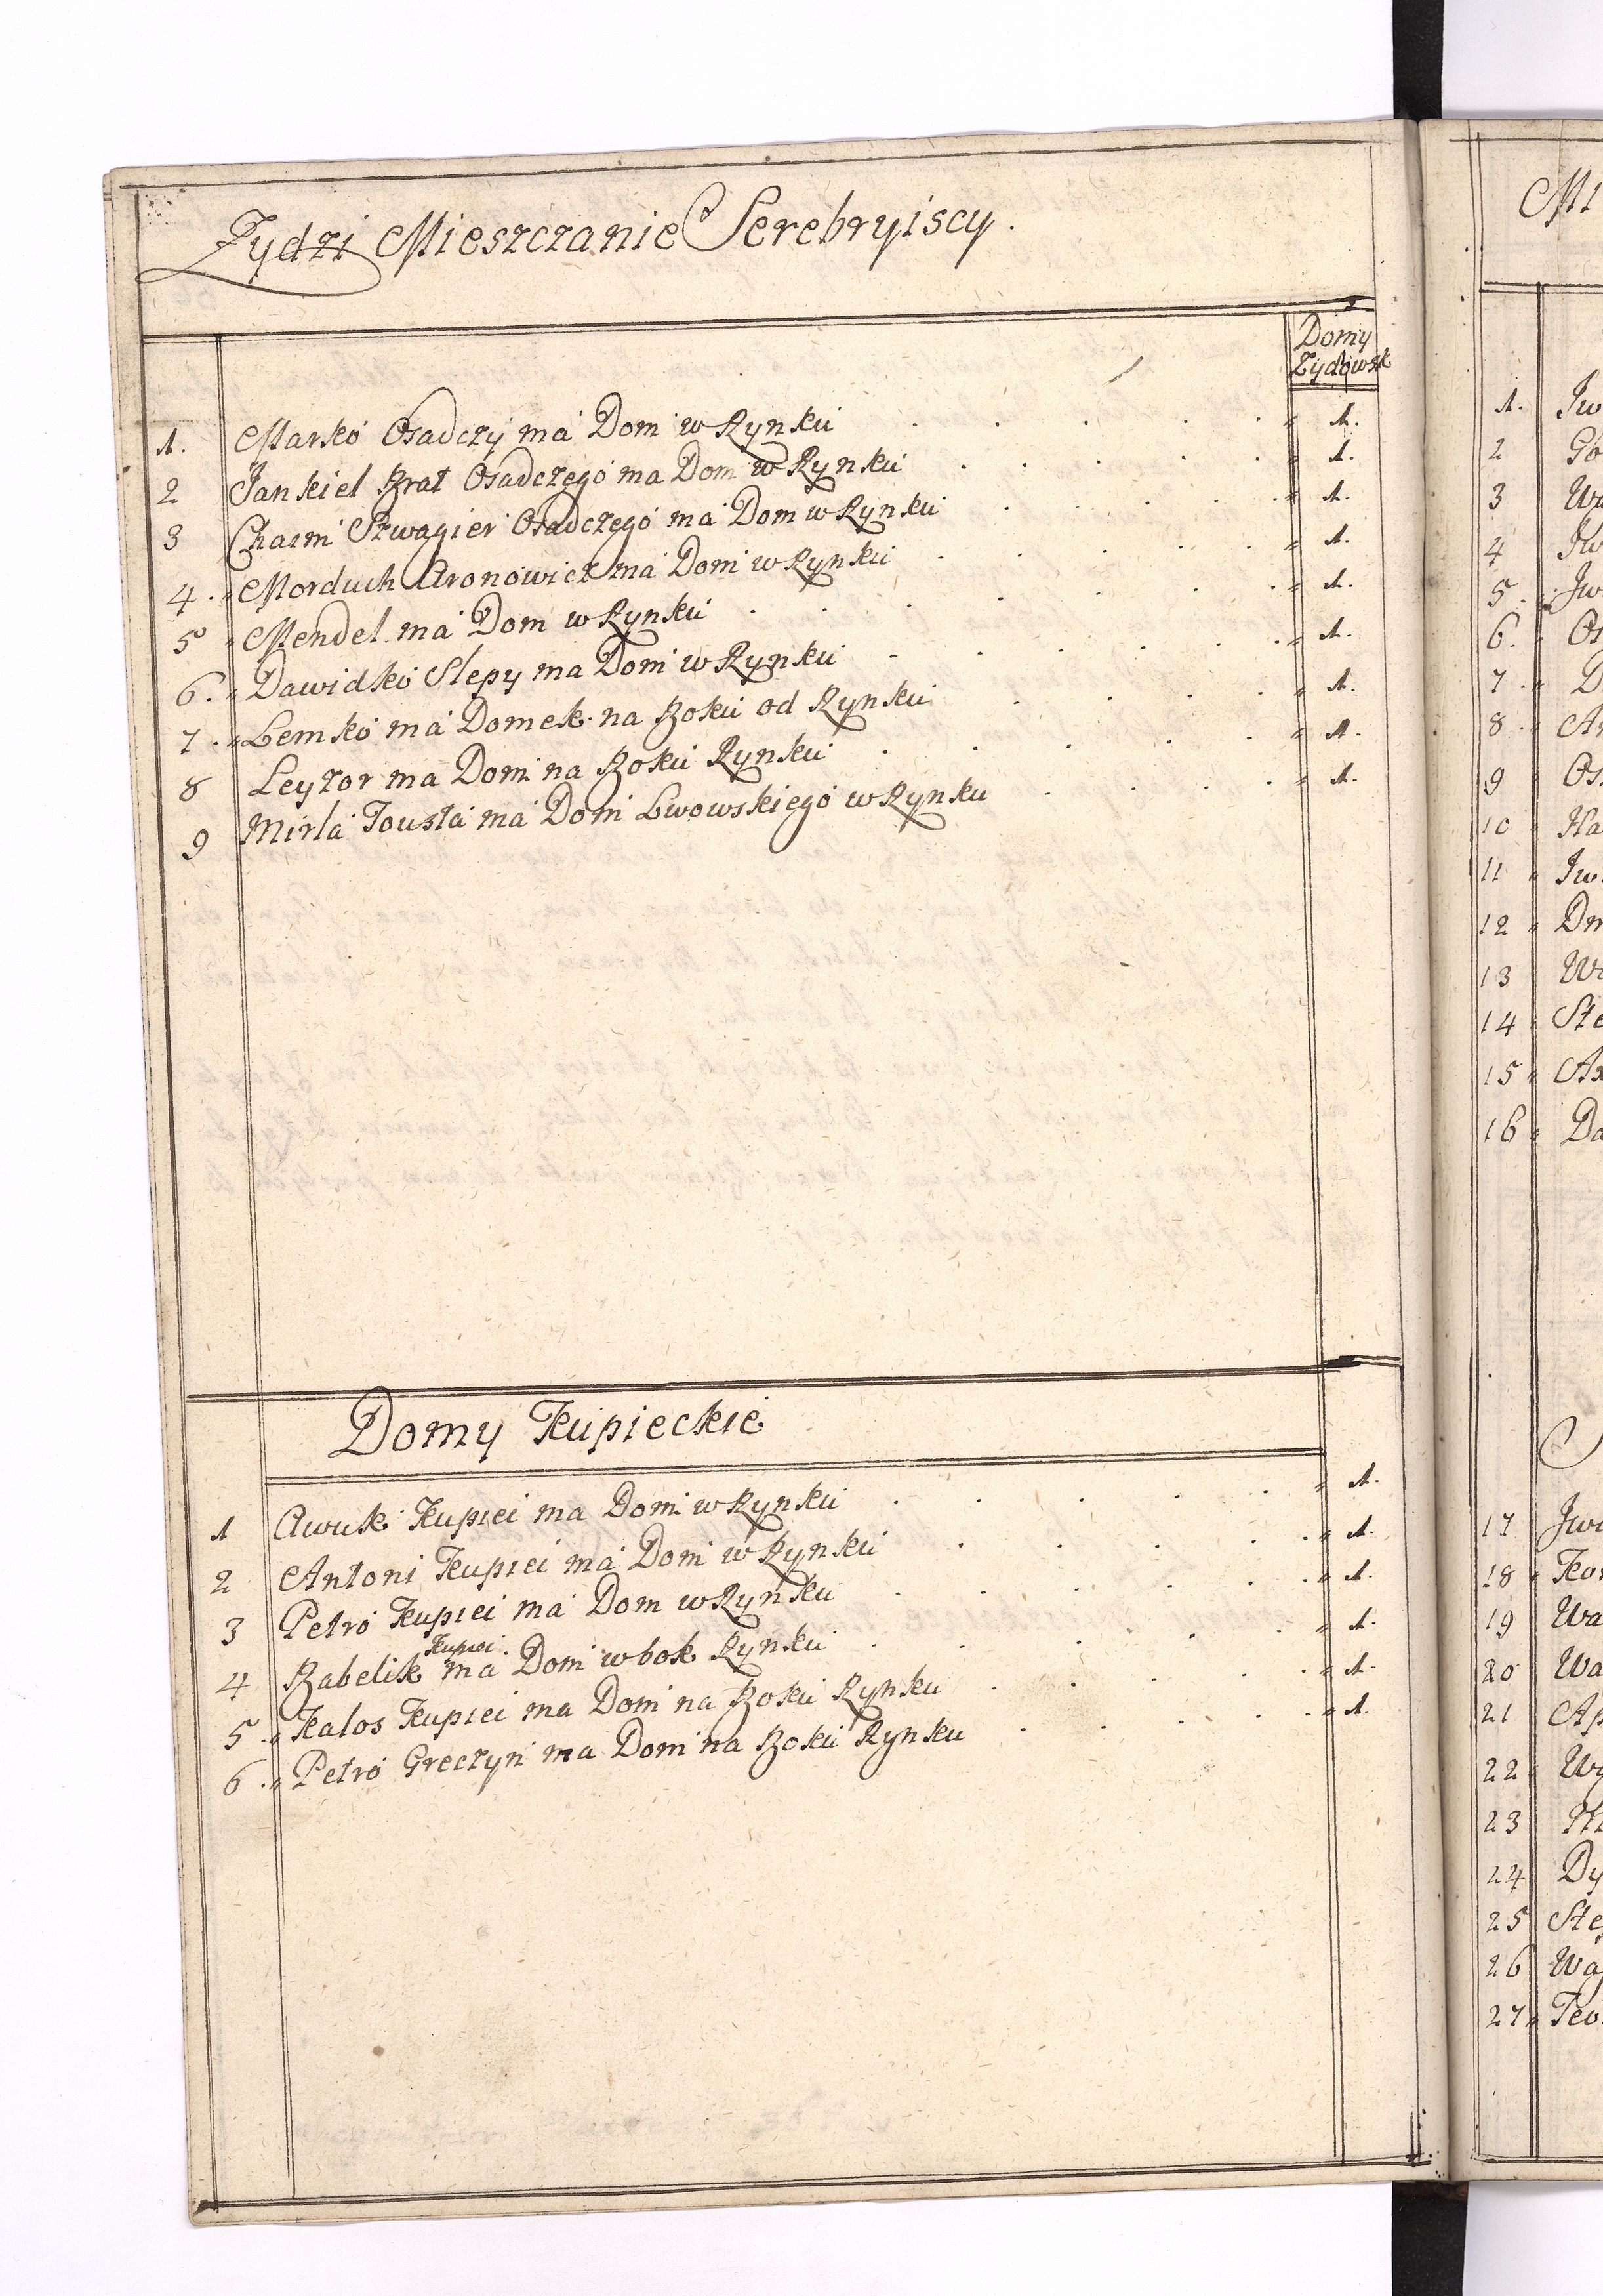 Zydzi Mieszczanie Serebryiscy.
Domy
Zydowsk
1. Marko Osadczy ma Dom w Rynku 1.
2 Jankiel Brat Osadczego ma Dom w Rynku 1.
3 Chaim Szwagier Osadczego ma Dom w Rynku 1.
4. Morduch Aronowicz ma Dom w Rynku 1.
5 Mendel ma Dom w Rynku 1.
6. Dawidko Slepy ma Dom w Rynku 1.
7. Lemko ma Domek na Boku od Rynku 1.
8 Leyzor ma Dom na Boku Rynku 1.
9 Mirla Tousta ma Dom Lwowskiego w Rynku 1.
Domy Kupieckie
1 Awuk Kupiei ma Dom w Rynku 1.
2 Antoni Kupiei ma Dom w Rynku 1.
3 Petro Kupiei ma Dom w Rynku 1.
4 Babelik Kupiei ma Dom w bok Rynku 1.
5. Kalos Kupiei ma Dom na Boku Rynku 1.
6. Petro Greczyn ma Dom na Boku Rynku 1.
1.
2
3
4
5.
6.
7.
8.
9
10
11
12
13
14
15
16
17
18
19
20
21
22
23
24
25
26
27